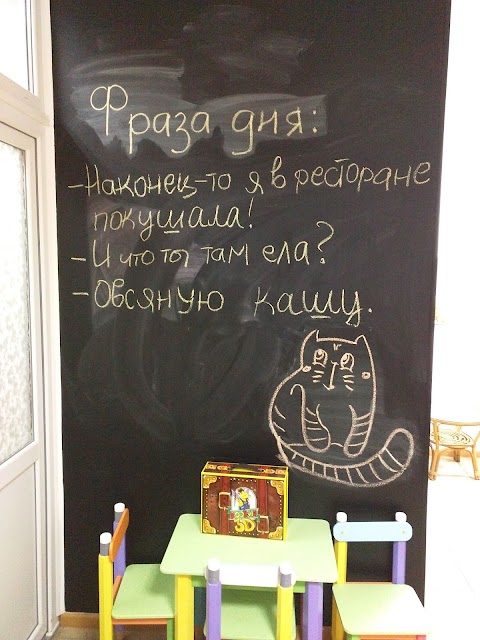 Фраза дня:
- Наконец-то я в ресторане
покушала!
- И что ты там ела?
- Овсяную кашу.
3D